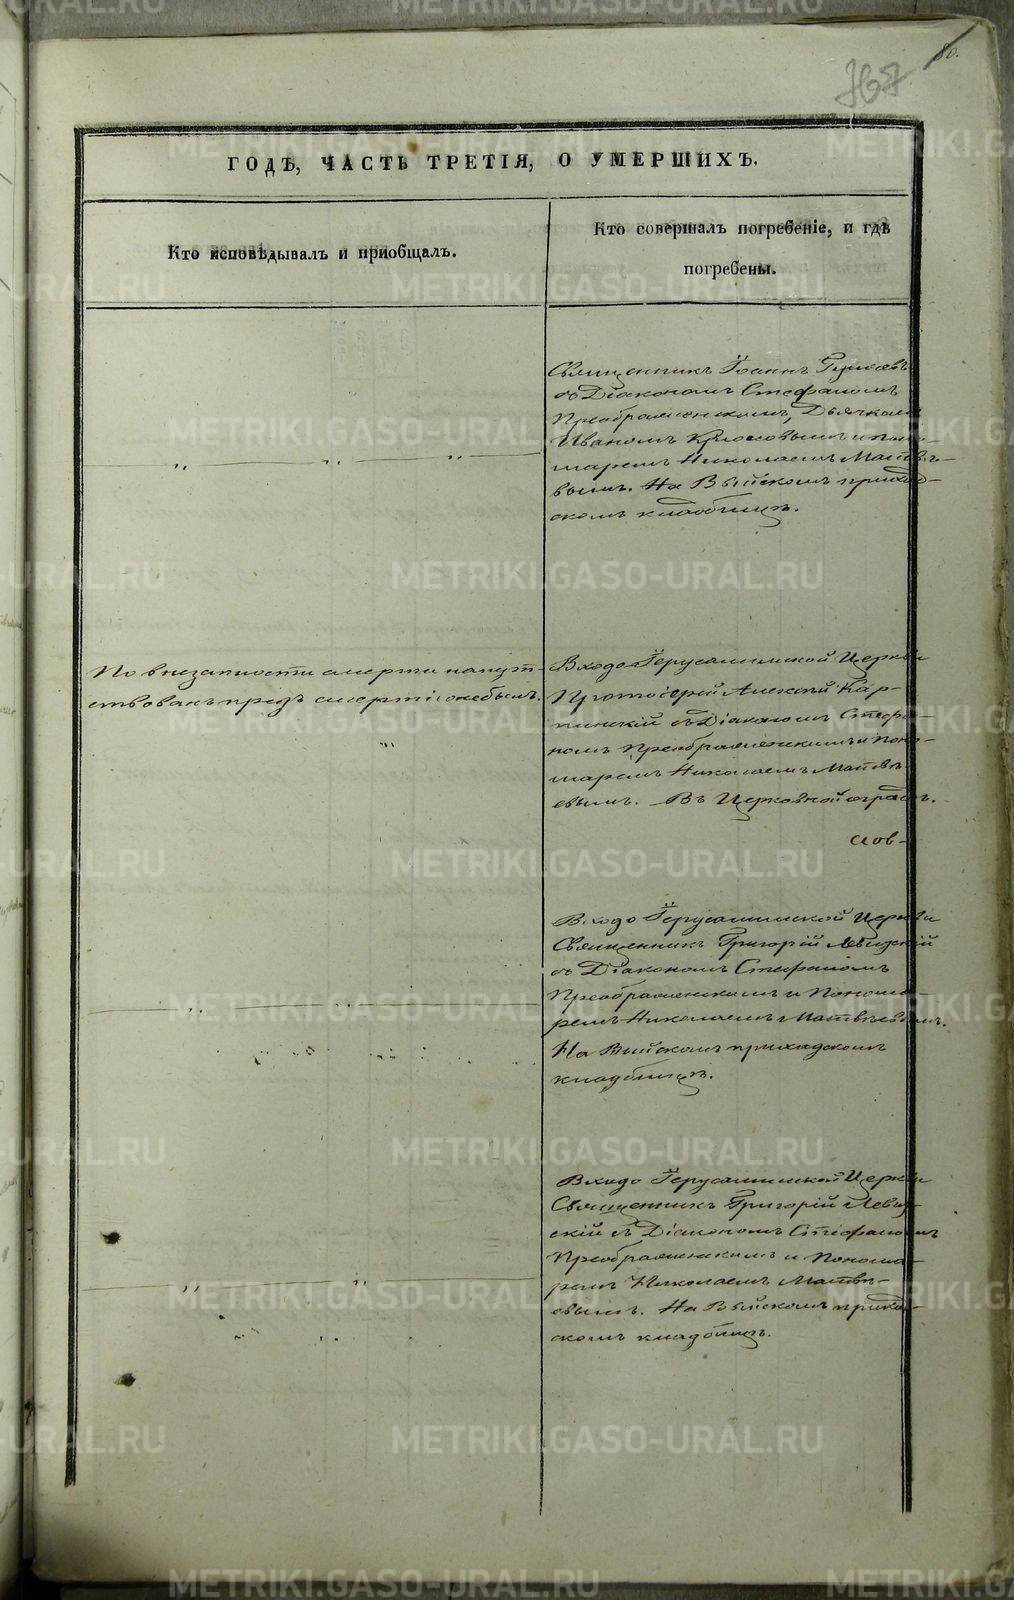 80.
367
ГОДЪ, ЧАСТЬ ТРЕТІЯ, О УМЕРШИХЪ.
Кто исповѣдывалъ и пріобщалъ.
Кто совершалъ погребеніе, и гдѣ
погребены.
Священникъ Іоаннъ
съ Діакономъ Стефаномъ
Преображенскимъ, Дьячкомъ
Иваномъ Крюковымъ и Поно-
маремъ Николаемъ Матвѣе-
вымъ. На Выйскомъ приход-
скомъ кладбищѣ.
По внезапности смерти напут-
ствованъ предъ смертію не былъ.
Входо-Іерусалимской Церкви
Протоіерей Алексѣй Кар-
пинскій съ Діакономъ Стефа-
номъ Преображенскимъ и Поно-
маремъ Николаемъ Матвѣ-
евымъ. – Въ Церковной оградѣ.
Входо Іерусалимской Церкви
Священникъ Григорій Левицкій
съ Діакономъ Стефаномъ
Преображенскимъ и Понома-
ремъ Николаемъ Матвѣевымъ.
На Выйскомъ приходскомъ
кладбищѣ.
Входо Іерусалимской Церкви
Священникъ Григорій Левиц-
кій съ Діакономъ Стефаномъ
Преображенскимъ и Понома-
ремъ Николаемъ Матвѣ-
евымъ. На Выйскомъ приход-
скомъ кладбищѣ.
METRIKI.GASO-URAL.RU